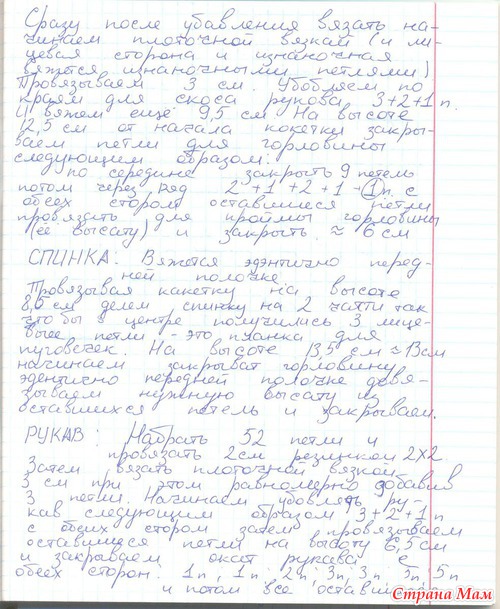 Сразу после убавления вязать на-
чинаем плоточной вязкой (и ли-
цевая сторона и изнаночная
вяжется изнаночными петлями)
Провязываем 3 см. Убобляем по
краям для скоса рукова 3+2+1 п.
И вяжем ещё 9,5 см. На высоте
12,5 см от начала кокетки закры-
ваем петли для горловины
следующим образом:
по середине закрыть 9 петель
потом через ряд 2+1+2+1+1п. с
обеех сторон оставшиеся петли
провязать для проймы горловины
(её высату) и закрыть ≈ 6 см
СПИНКА: Вяжется эдэнтично перед-
ней полочке.
Провязывая какетку на высоте
8,5 см делем спинку на 2 части так
что бы в центре получились 3 лице-
вые петли - это планка для
пуговичек. На высоте 13,5 см ≈ 13 см
начинаем закрыват горловину
эдентисно передней полочке довя-
зываем нужную высату из
оставшихся петель и закрываем.
РУКАВ: Набрать 52 петли и
провязать 2см резинкой 2х2
Затем вязать плоточной вязкой
3 см при этом равномерно добавив
3 петли. Начинаем убовлять ру-
кав следующим образом 3+2+1п
с обеих сторон затем провязываем
оставшиеся петли на высоту 6,5 см
и закрываем окат рукава с
обеех сторон. 1п, 1п, 2п, 3п, 3п, 5п, 5п
и потом все оставшиеся
Страна Мам